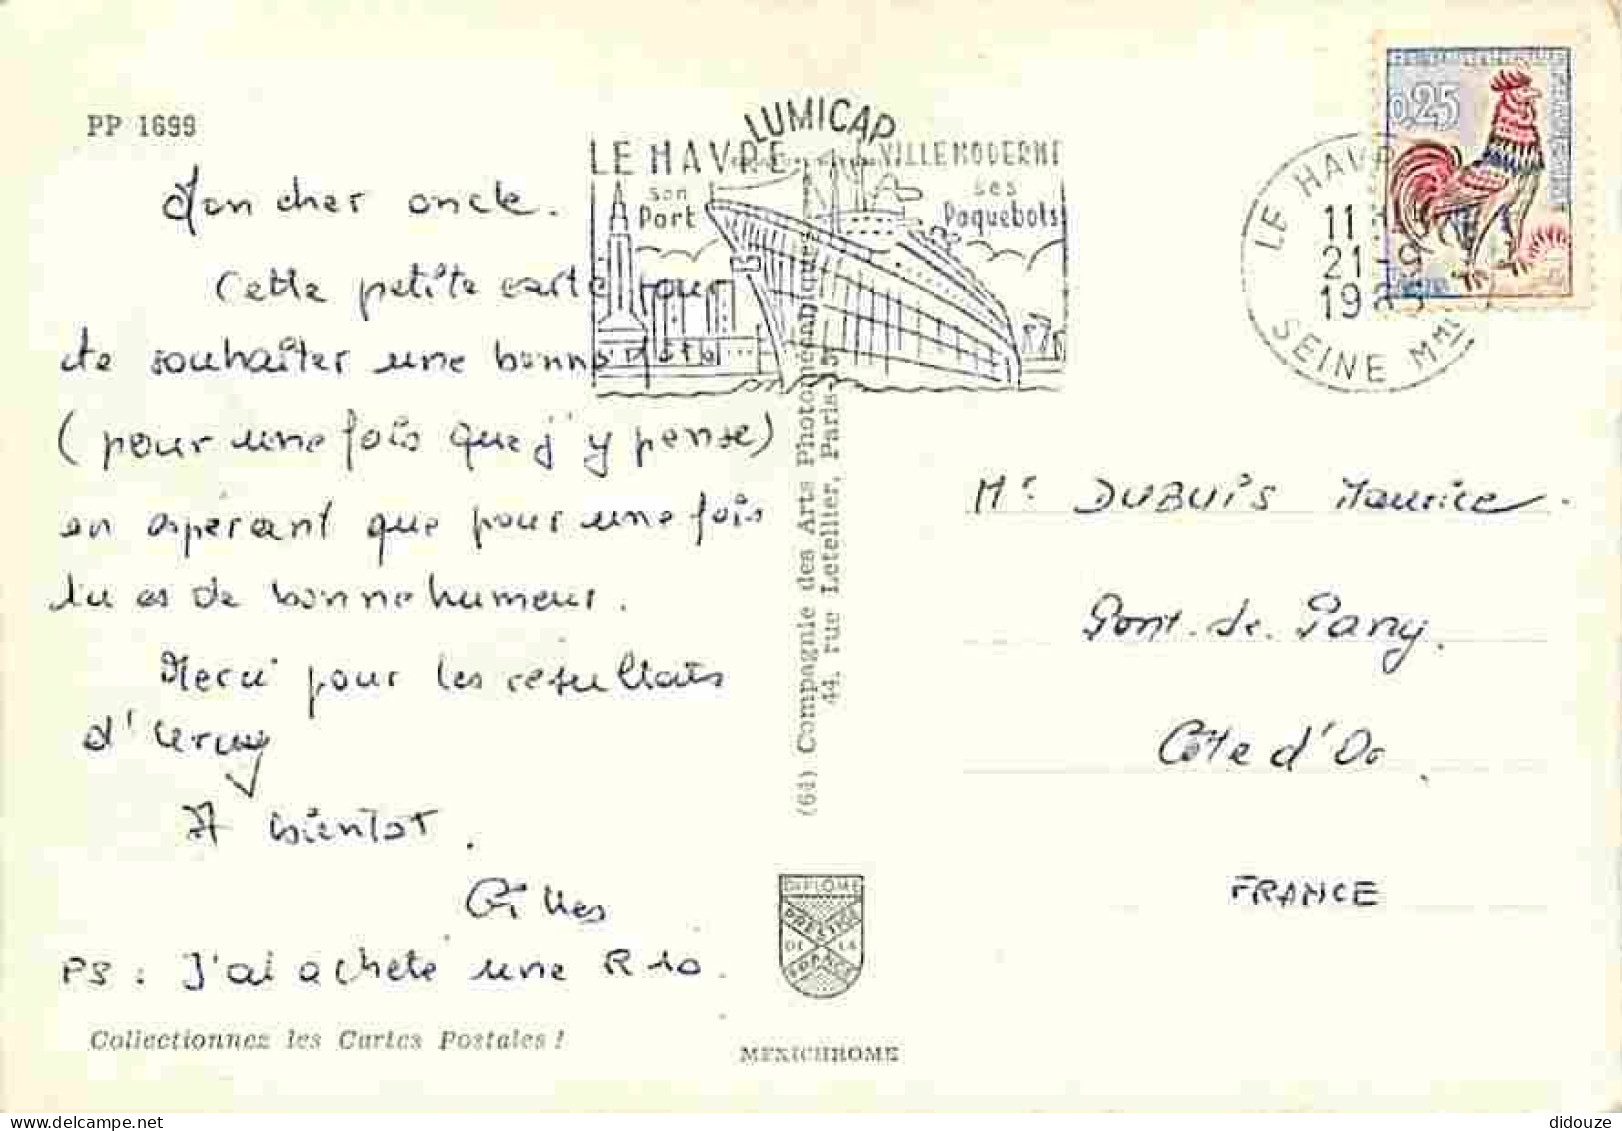 PP 1699
LUMICAP
LE HAVRE VILLE MODERNE
son Port
ses Paquebots
LE HAVRE
11 H
21-9
19
SEINE MME
0,25
Mon cher oncle.
Cette petite carte pour
te souhaiter une bonne fête
(pour une fois que j'y pense)
en espérant que pour une fois
tu es de bonne humeur.
Merci pour les résultats
d'
A bientot.
Gilles
PS : J'ai acheté une R10.
Collectionnez les Cartes Postales !
(64) Compagnie des Arts Photomécaniques
44, rue Letellier, Paris-15
DIPLOME
PRESTIGE
DE LA
FRANCE
MEXICHROME
Mr DUBUIS Maurice.
Pont-de-Pany.
Côte d'Or.
FRANCE
didouze